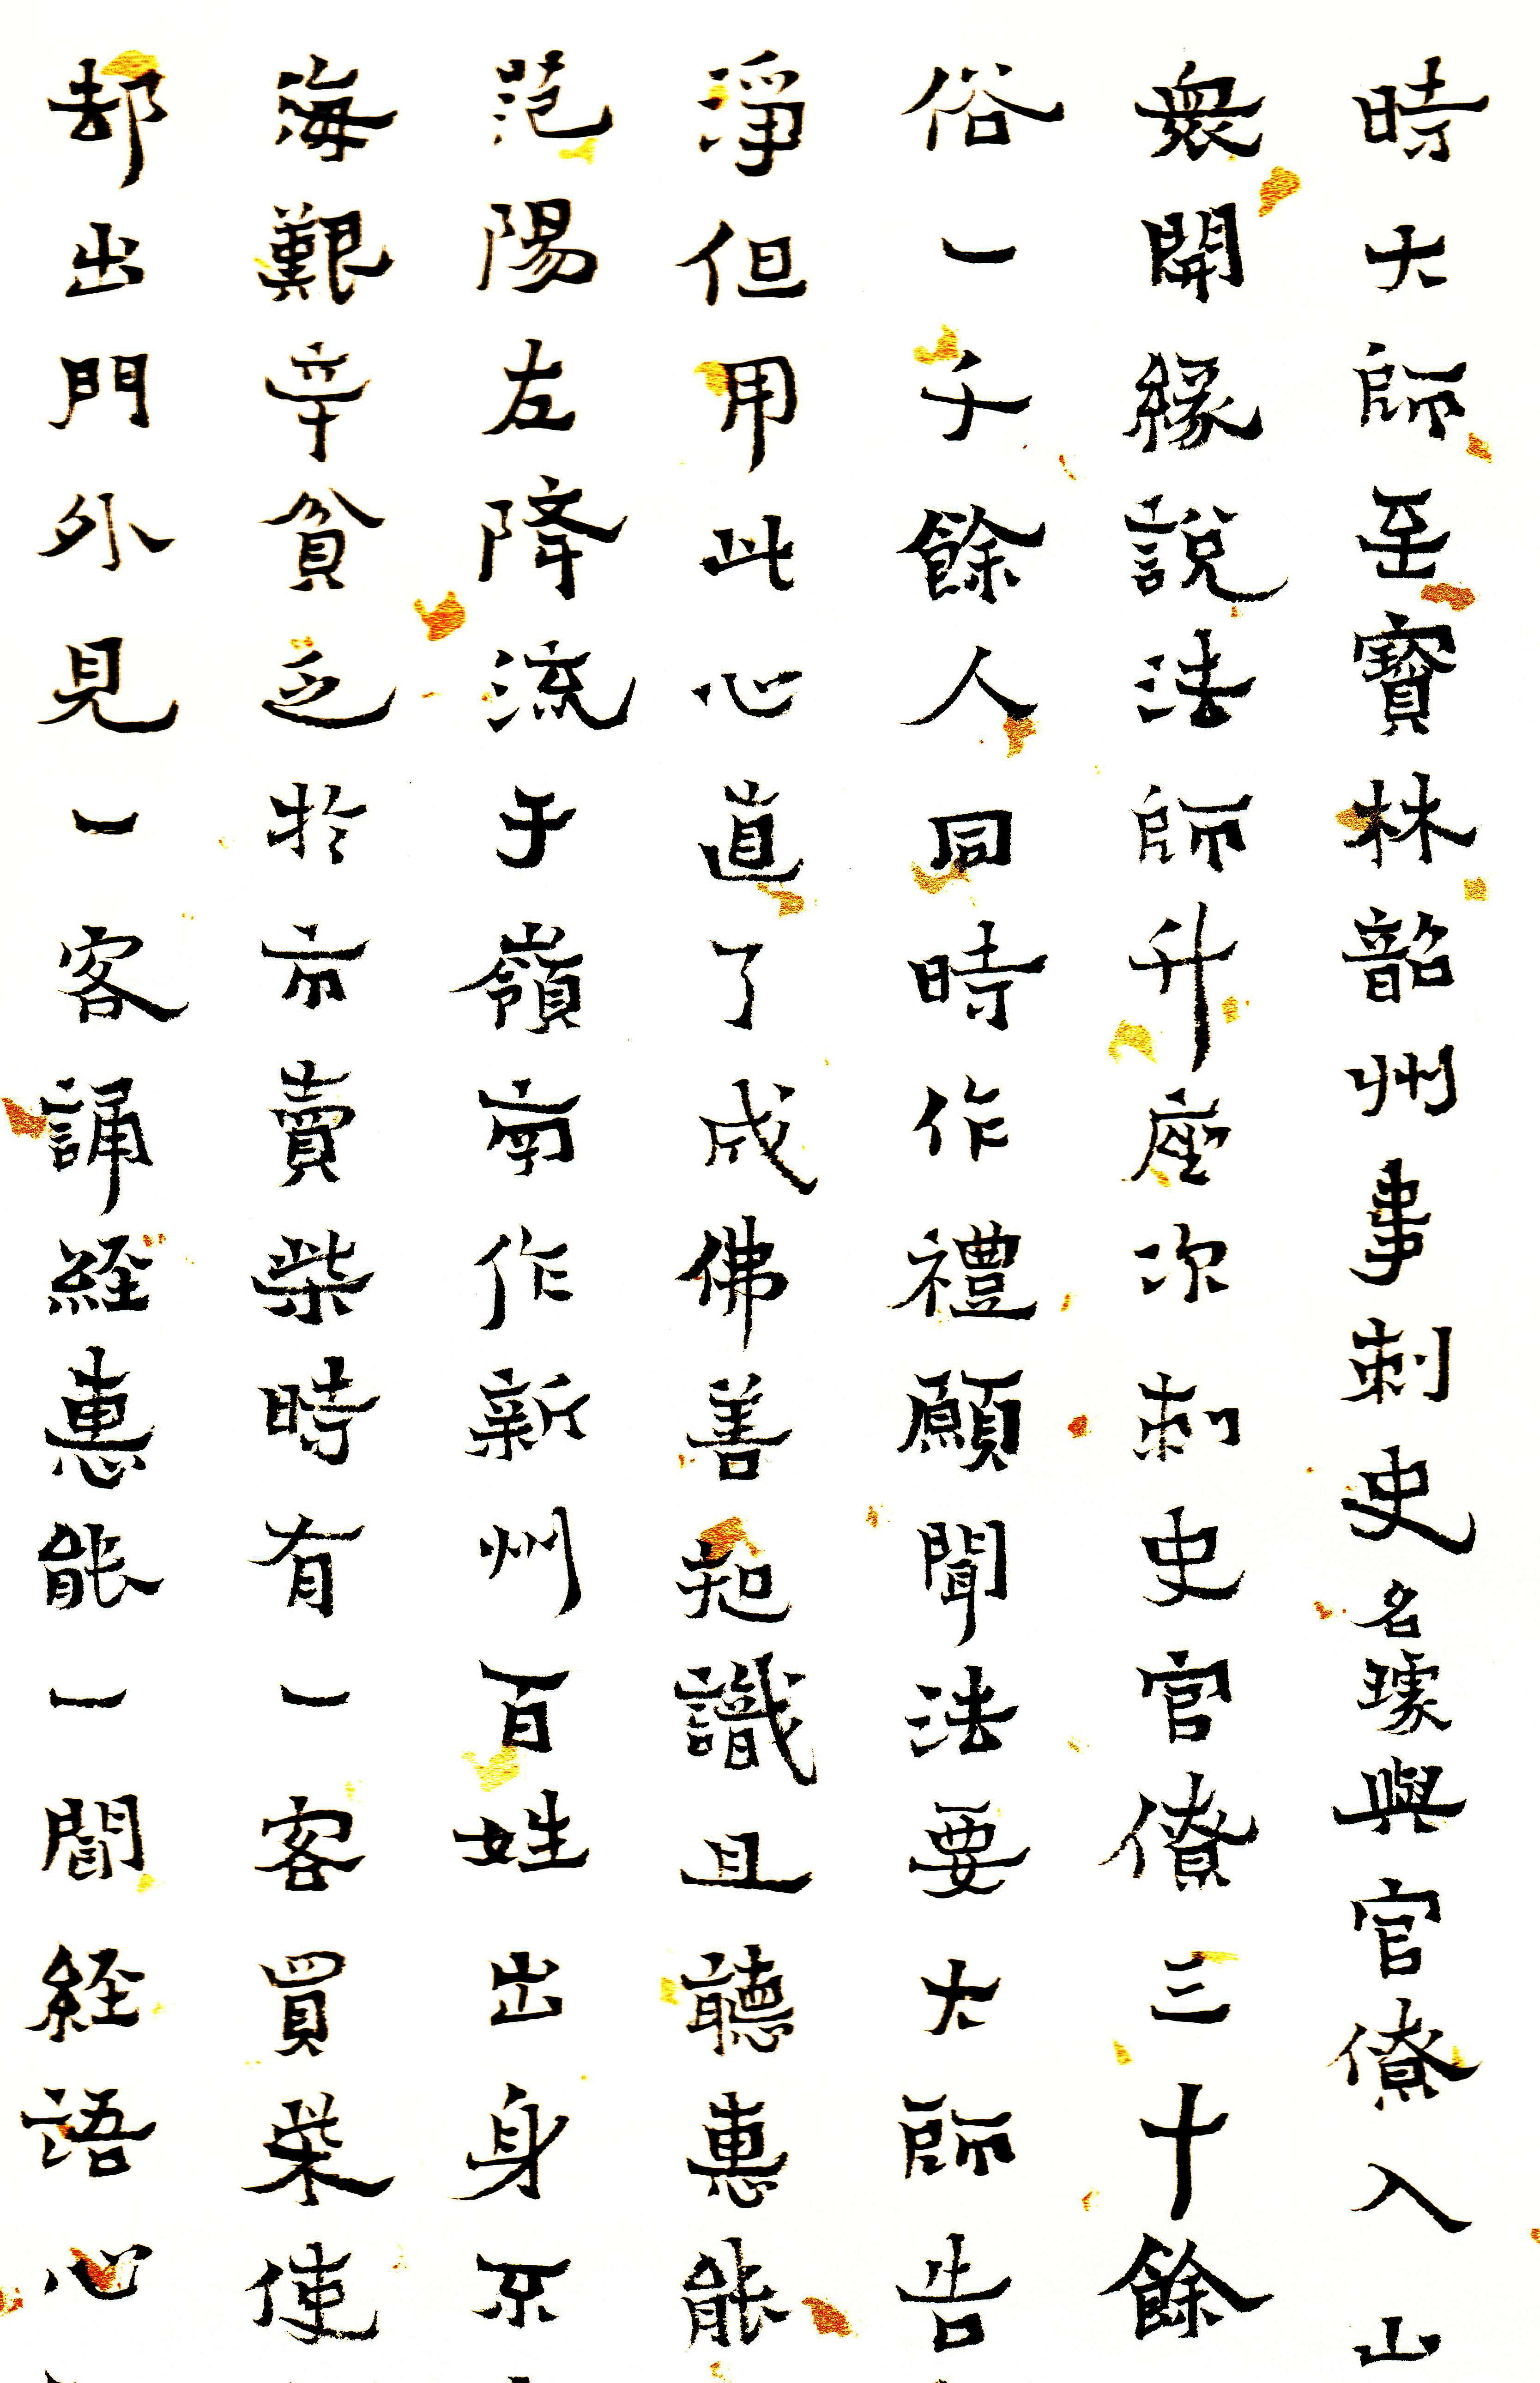 時大師至寳林韶州事刺史名璩與官僚入山
衆開緣説法師升座次刺史官僚三十餘
俗一千餘人同時作禮願聞法要大師告
淨但用此心道了成佛善知識且聽惠能
范陽左降流于嶺南作新州百姓出身不
海艱辛貧乏於市賣柴時有一客買柴使
却出門外見一客誦経惠能一聞経語心